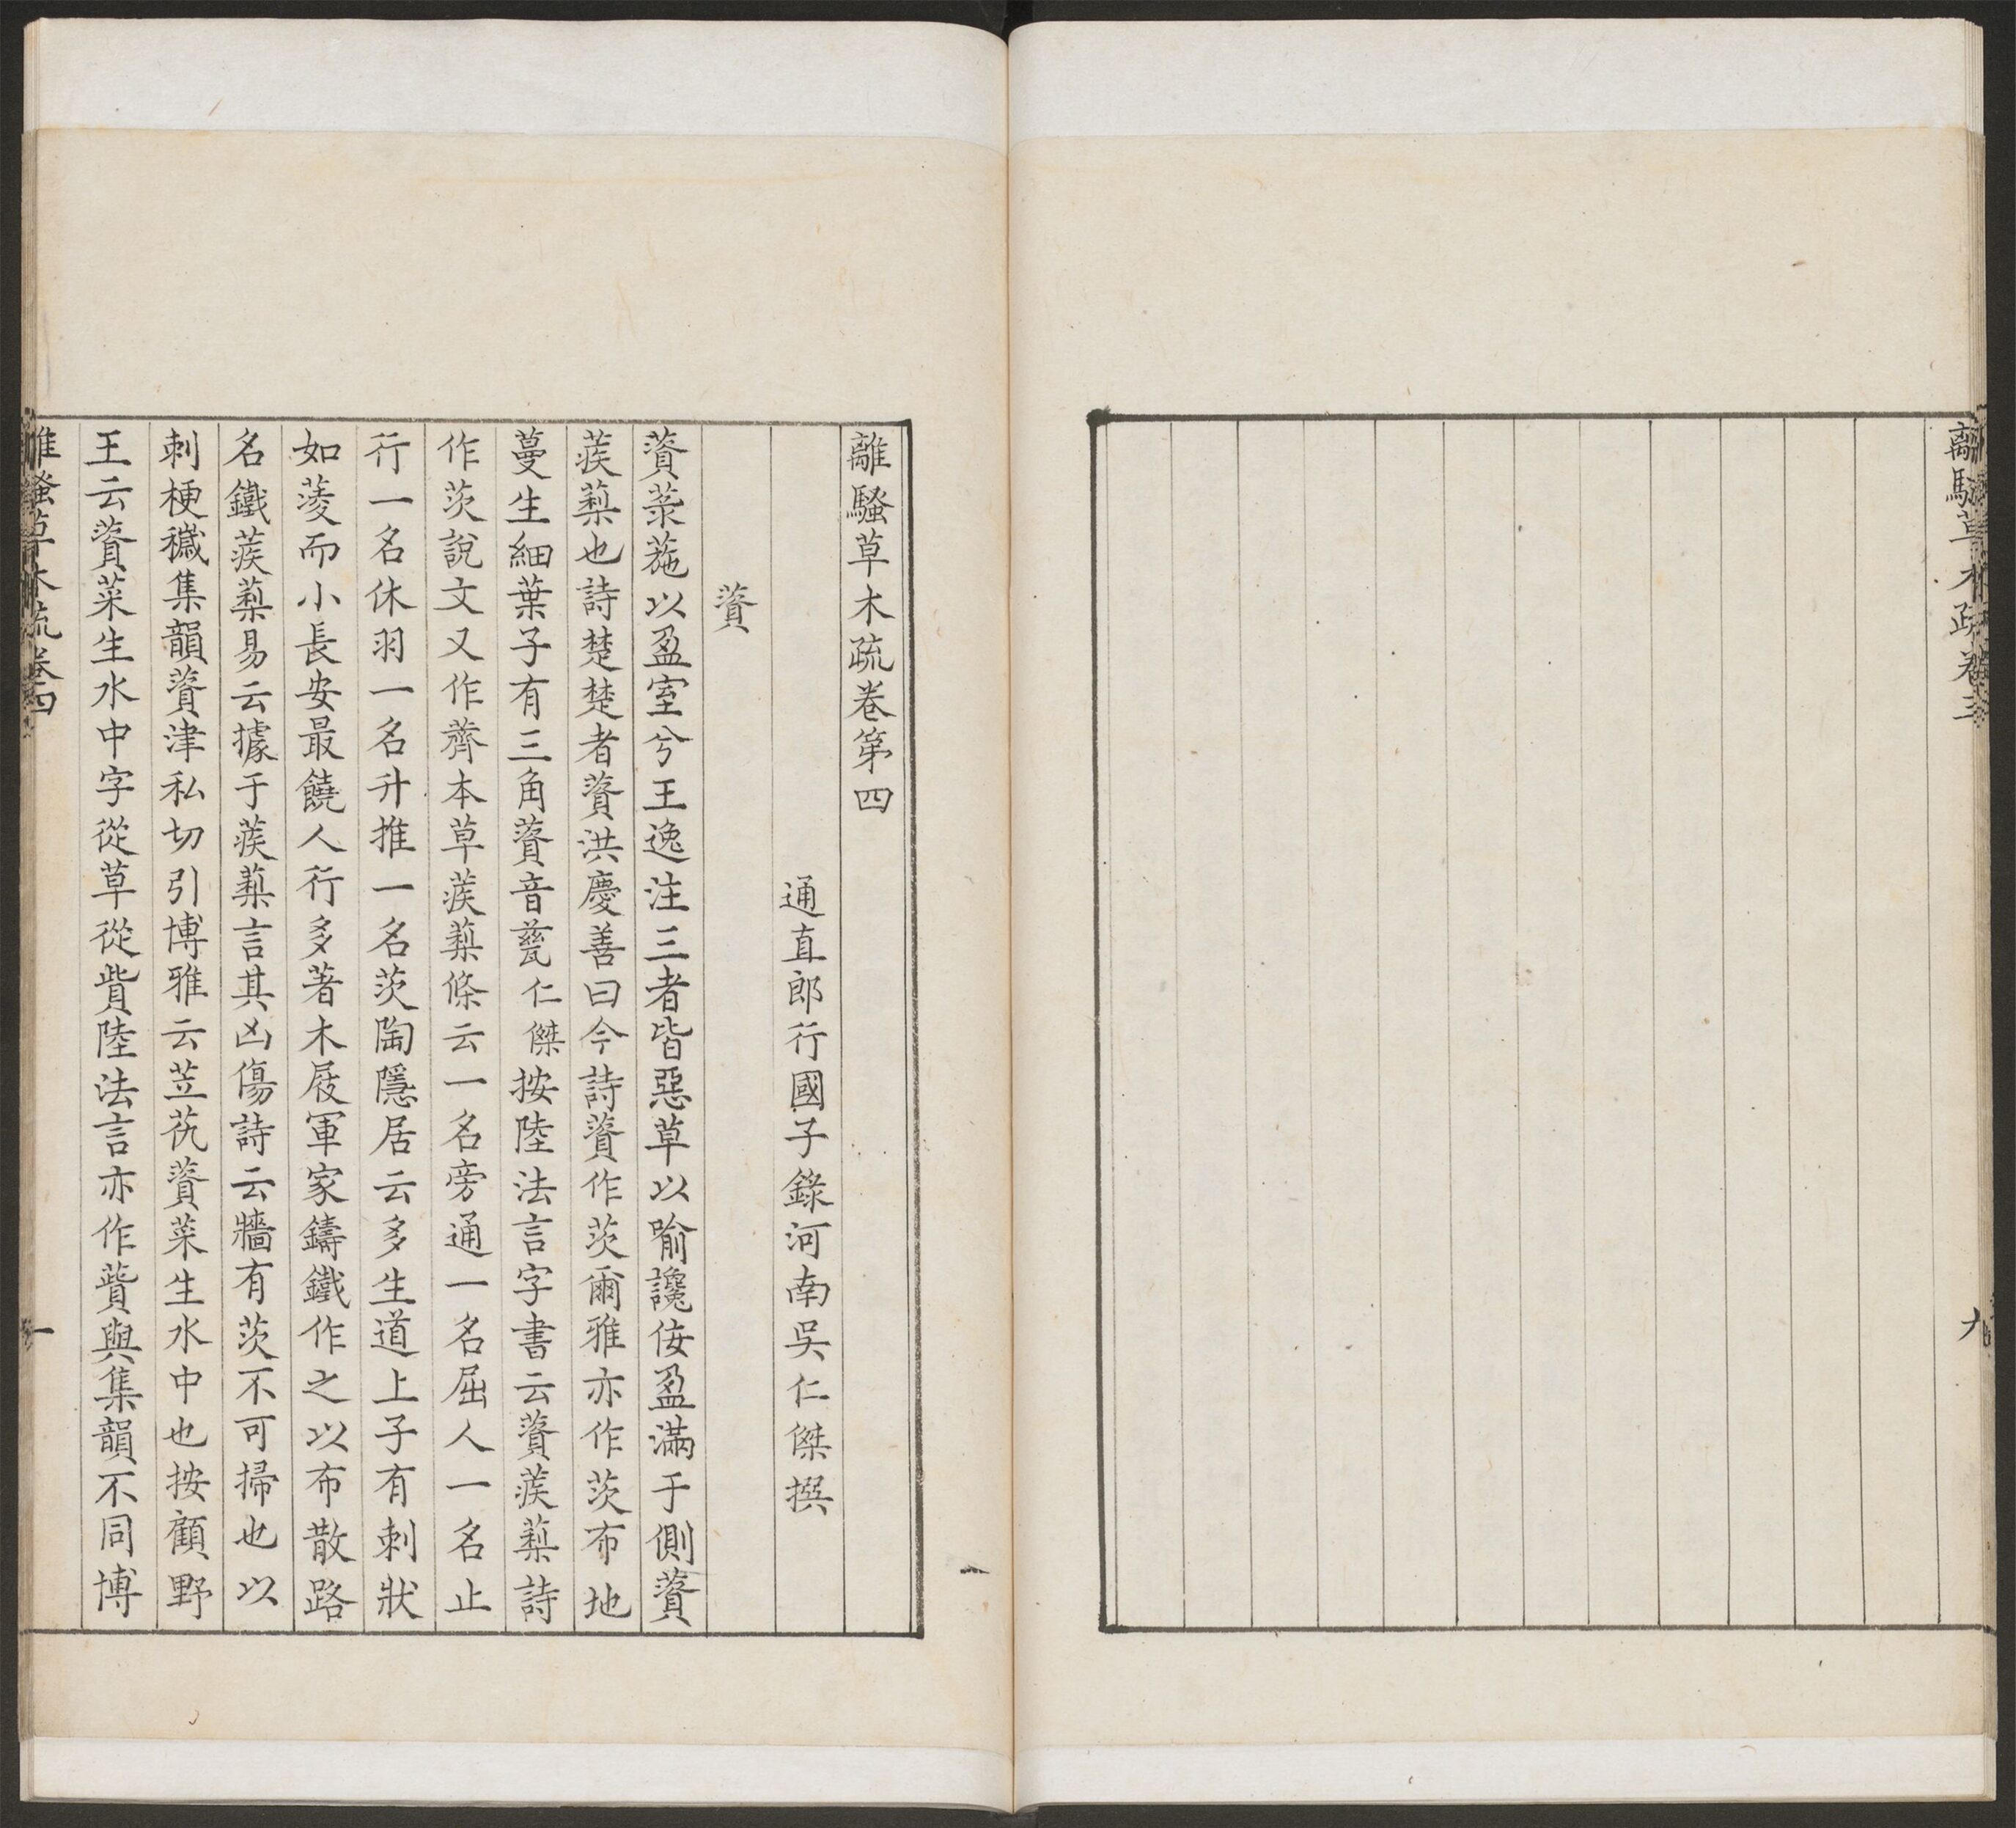 離騷草木疏卷三
九
離騷草木疏卷第四
通直郎行國子錄河南吳仁傑撰
薋
薋菉葹以盈室兮王逸注三者皆惡草以喻讒佞盈滿于側薋
蒺蔾也詩楚楚者薋洪慶善曰今詩薋作茨爾雅亦作茨布地
蔓生細葉子有三角薋音甆仁傑按陸法言字書云薋蒺蔾詩
作茨說文又作薺本草蒺蔾條云一名旁通一名屈人一名止
行一名休羽一名升推一名茨陶隱居云多生道上子有刺狀
如菱而小長安最饒人行多著木屐軍家鑄鐵作之以布散路
名鐵蒺蔾易云據于蒺蔾言其凶傷詩云牆有茨不可掃也以
刺梗穢集韻薋津私切引博雅云苙茿薋菜生水中也按顧野
王云薋菜生水中字從草從貲陸法言亦作薋與集韻不同博
離騷草木疏卷四
一